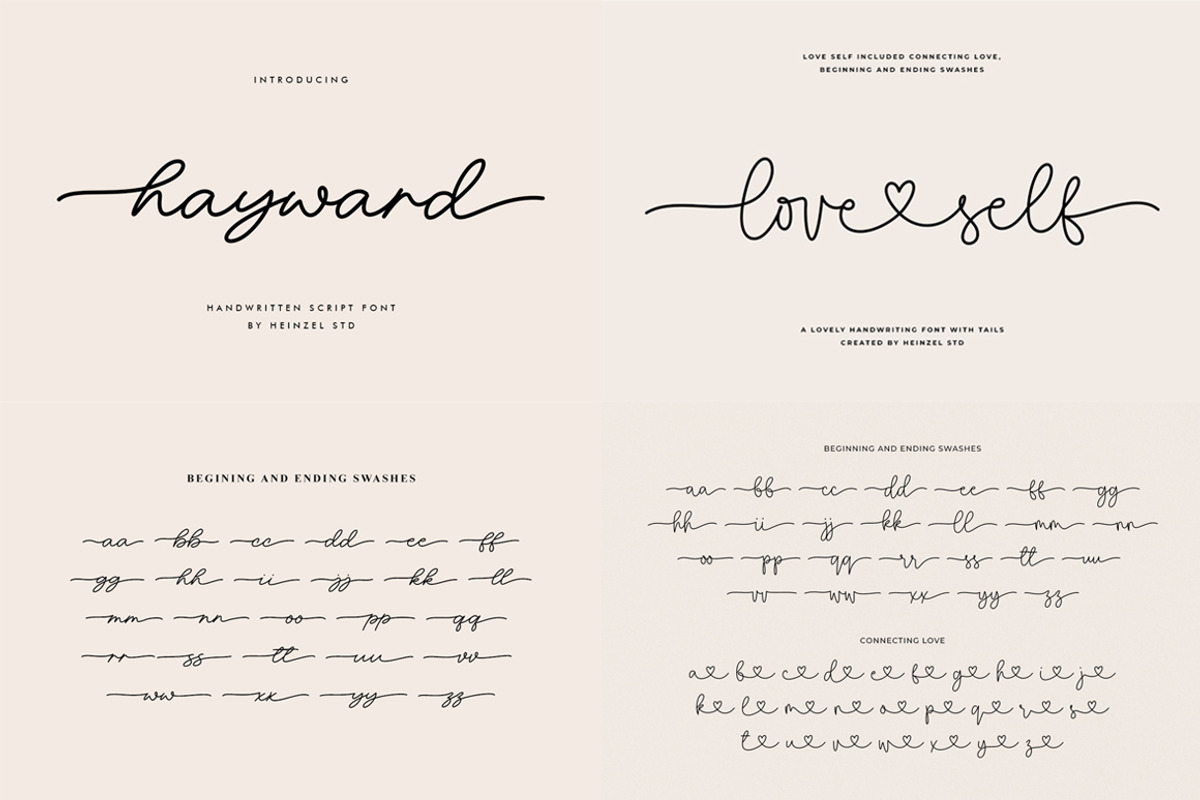 INTRODUCING
hayward
HANDWRITTEN SCRIPT FONT
BY HEINZEL STD
LOVE SELF INCLUDED CONNECTING LOVE,
BEGINNING AND ENDING SWASHES
love♡self
A LOVELY HANDWRITING FONT WITH TAILS
CREATED BY HEINZEL STD
BEGINING AND ENDING SWASHES
aa bb cc dd ee ff
gg hh ii jj kk ll
mm nn oo pp qq
rr ss tt uu vv
ww xx yy zz
BEGINNING AND ENDING SWASHES
aa bb cc dd ee ff gg
hh ii jj kk ll mm nn
oo pp qq rr ss tt uu
vv ww xx yy zz
CONNECTING LOVE
a♡ b♡ c♡ d♡ e♡ f♡ g♡ h♡ i♡ j♡
k♡ l♡ m♡ n♡ o♡ p♡ q♡ r♡ s♡
t♡ u♡ v♡ w♡ x♡ y♡ z♡